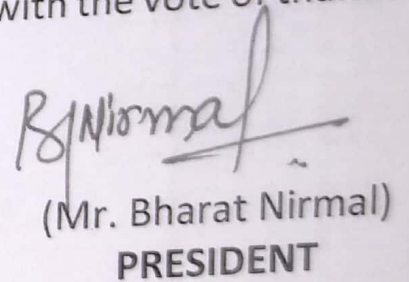 with the vote of
BJNirmal
(Mr. Bharat Nirmal)
PRESIDENT